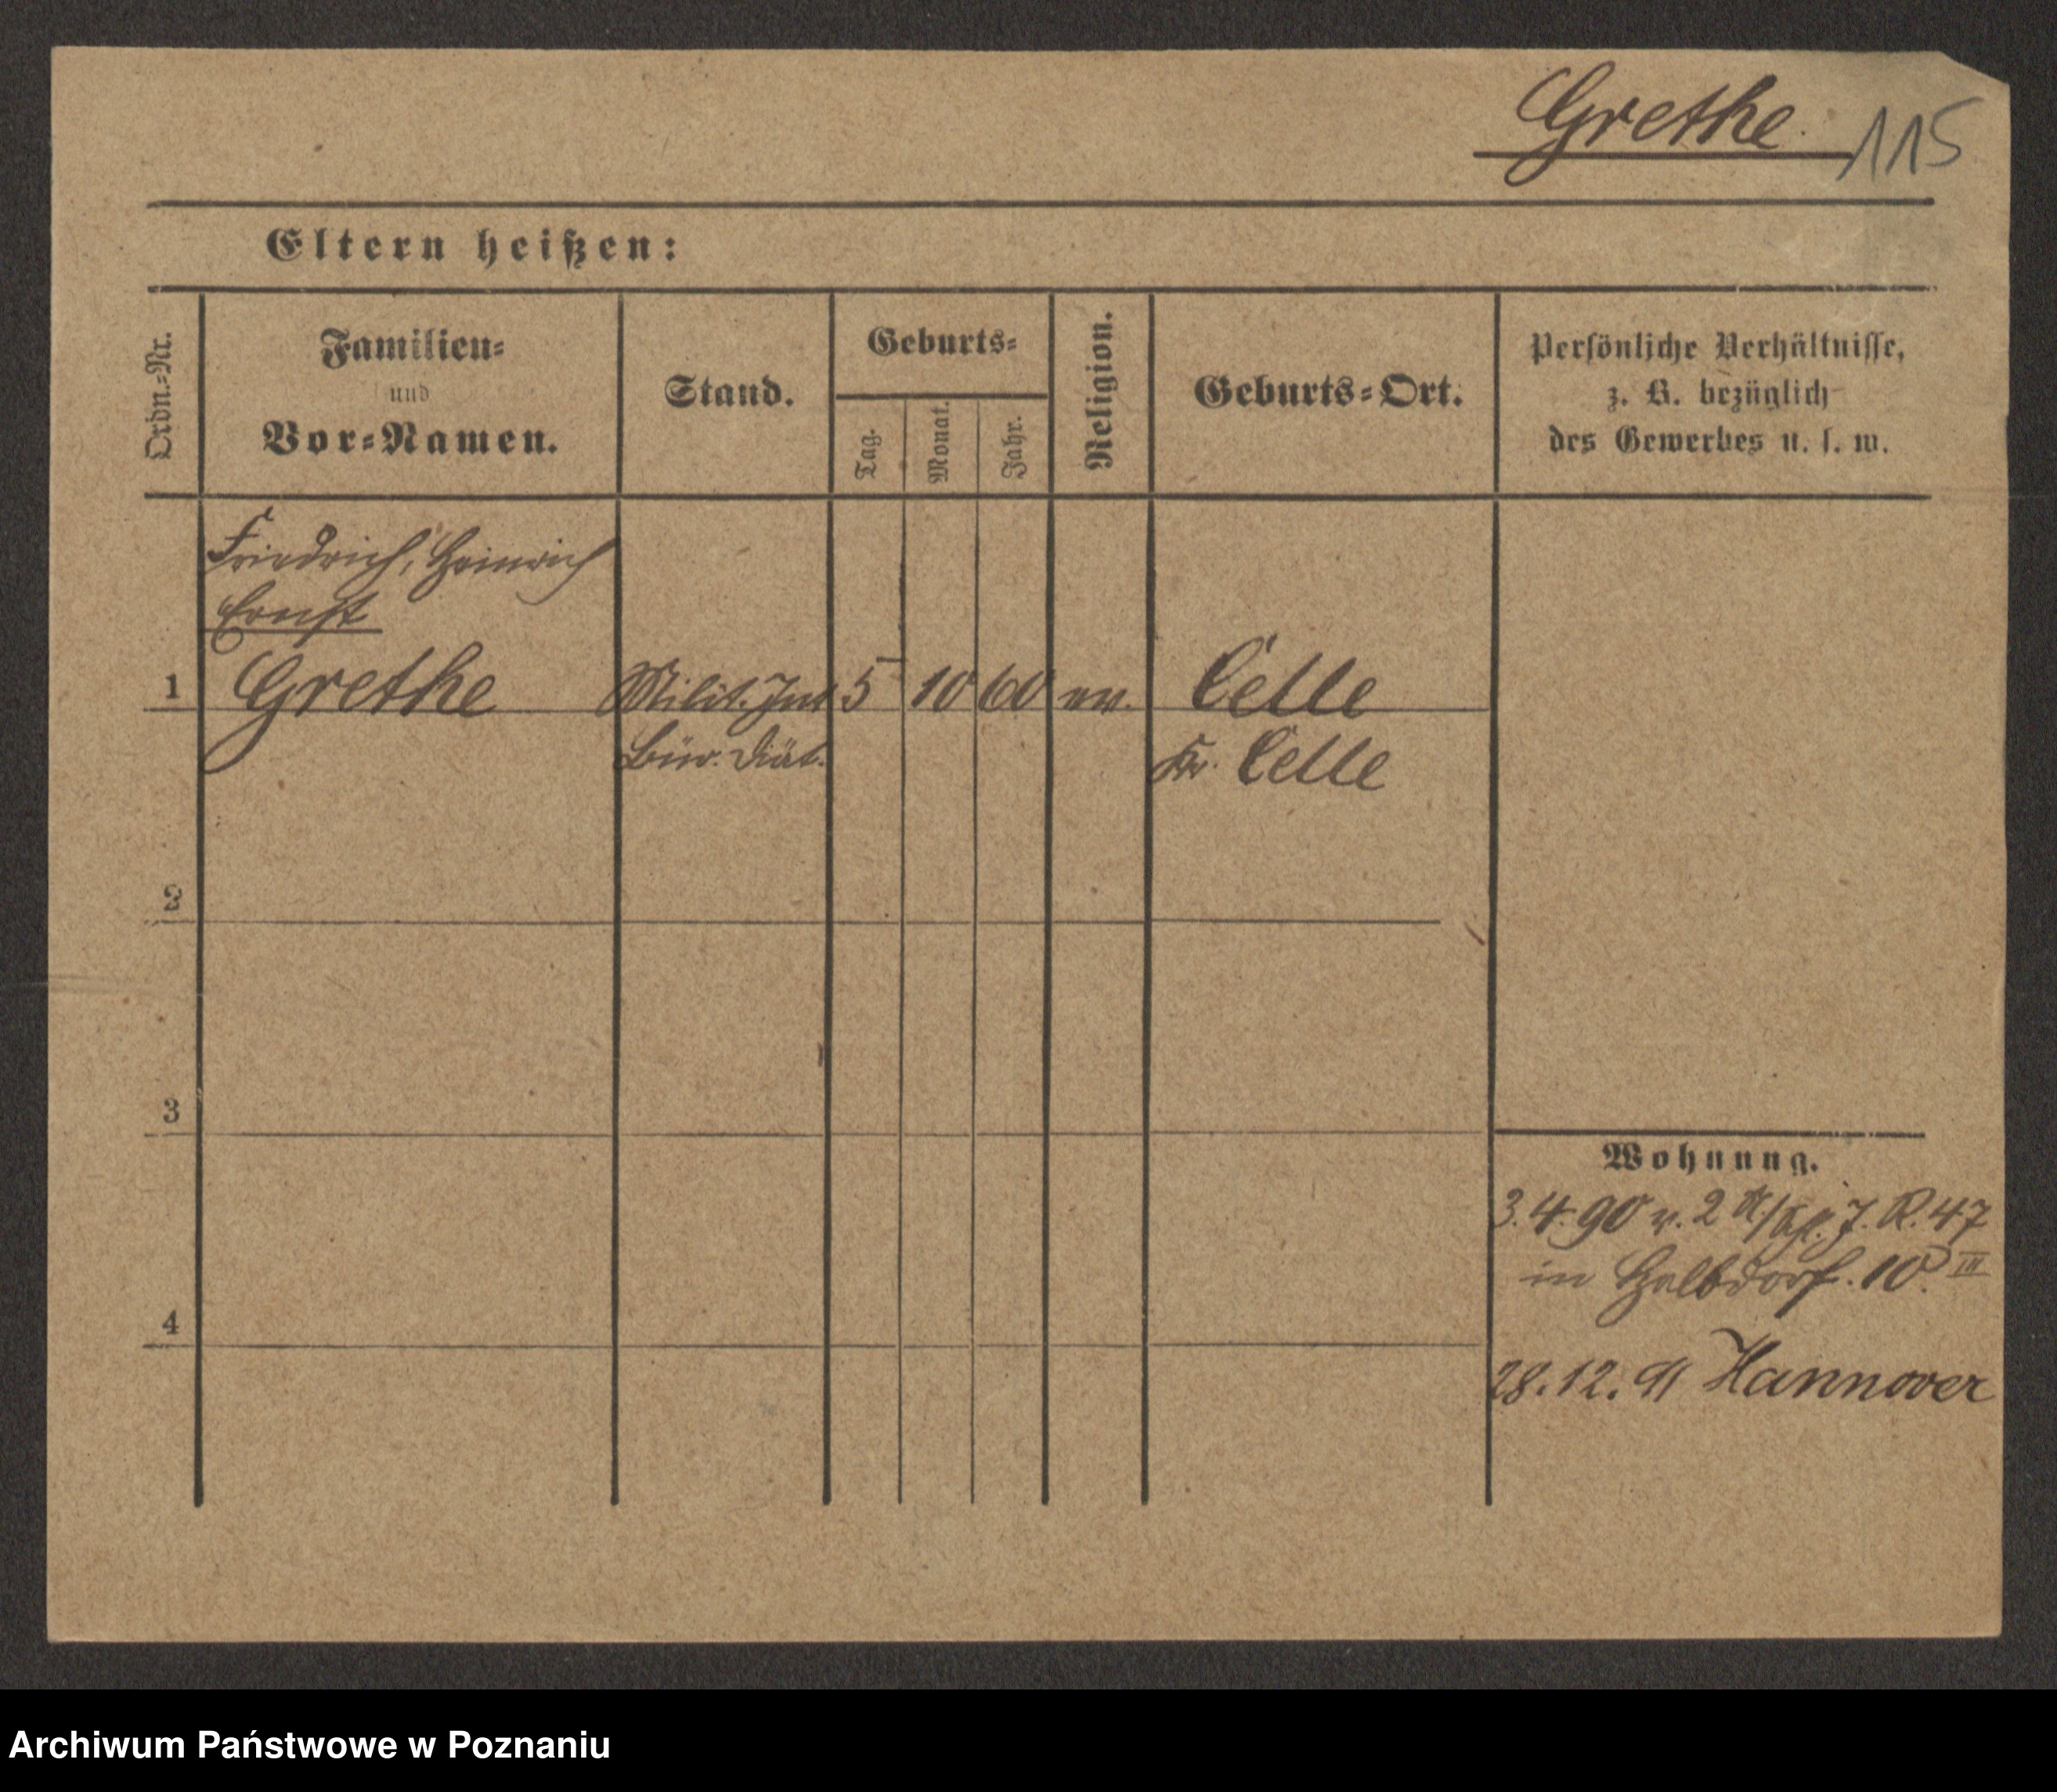 Grethe 115
Eltern heißen:
Ordn.-Nr.
Familien-
und
Vor-Namen.
Stand.
Geburts-
Tag.
Monat.
Jahr.
Religion.
Geburts-Ort.
Persönliche Verhältnisse,
z. B. bezüglich
des Gewerbes u. s. w.
Friedrich, Heinrich
Ernst
1 Grethe Milit. Int 5 10 60 ev. Celle
Bür. Diät. Kr. Celle
2
3
4
Wohnung.
3.4.90 v. 2 J. R. 47
in Halbdorf. 10 III
28.12.91 Hannover
Archiwum Państwowe w Poznaniu